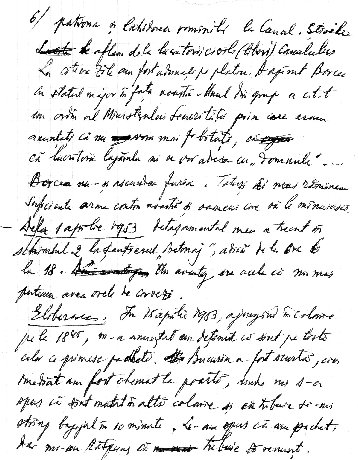 6/ patrona și latidorea romînilor la Canal. Știrile
le aflam de la lucrătorii civili (liberi) Canalului
La cîteva zile am fost adunați pe platou. A apărut Borcea
cu statul major în fața noastră. Unul din grup a citit
un ordin al Ministrului Securității prin care eram
anunțați că nu vom mai fi bătuți,
că lucrătorii lagărului ni se vor adresa cu „domnule" ....
Borcea nu-și ascundea furia. Totuși
suficiente arme contra noastră și oameni care să le mînuiască
- De la 1 aprilie 1953 detașamentul meu a trecut în
schimbul 2 la șantierul, adică de la ora 6
la 18. Un avantaj, era acela că nu mai
puteam avea orele de corvezi.
Eliberarea. În 15 aprilie 1953, ajungînd în colonie
pe la 18⁴⁵, m-a anunțat un deținut că sînt pe lista
celor ce primesc pachete. Bucuria a fost scurtă, căci
imediat am fost chemat la poartă, unde ni s-a
spus că sînt mutat în altă colonie și că trebuie să-mi
strîng bagajul în 10 minute. Le-am spus că am pachet,
dar mi-au răspuns că trebuie să renunț.